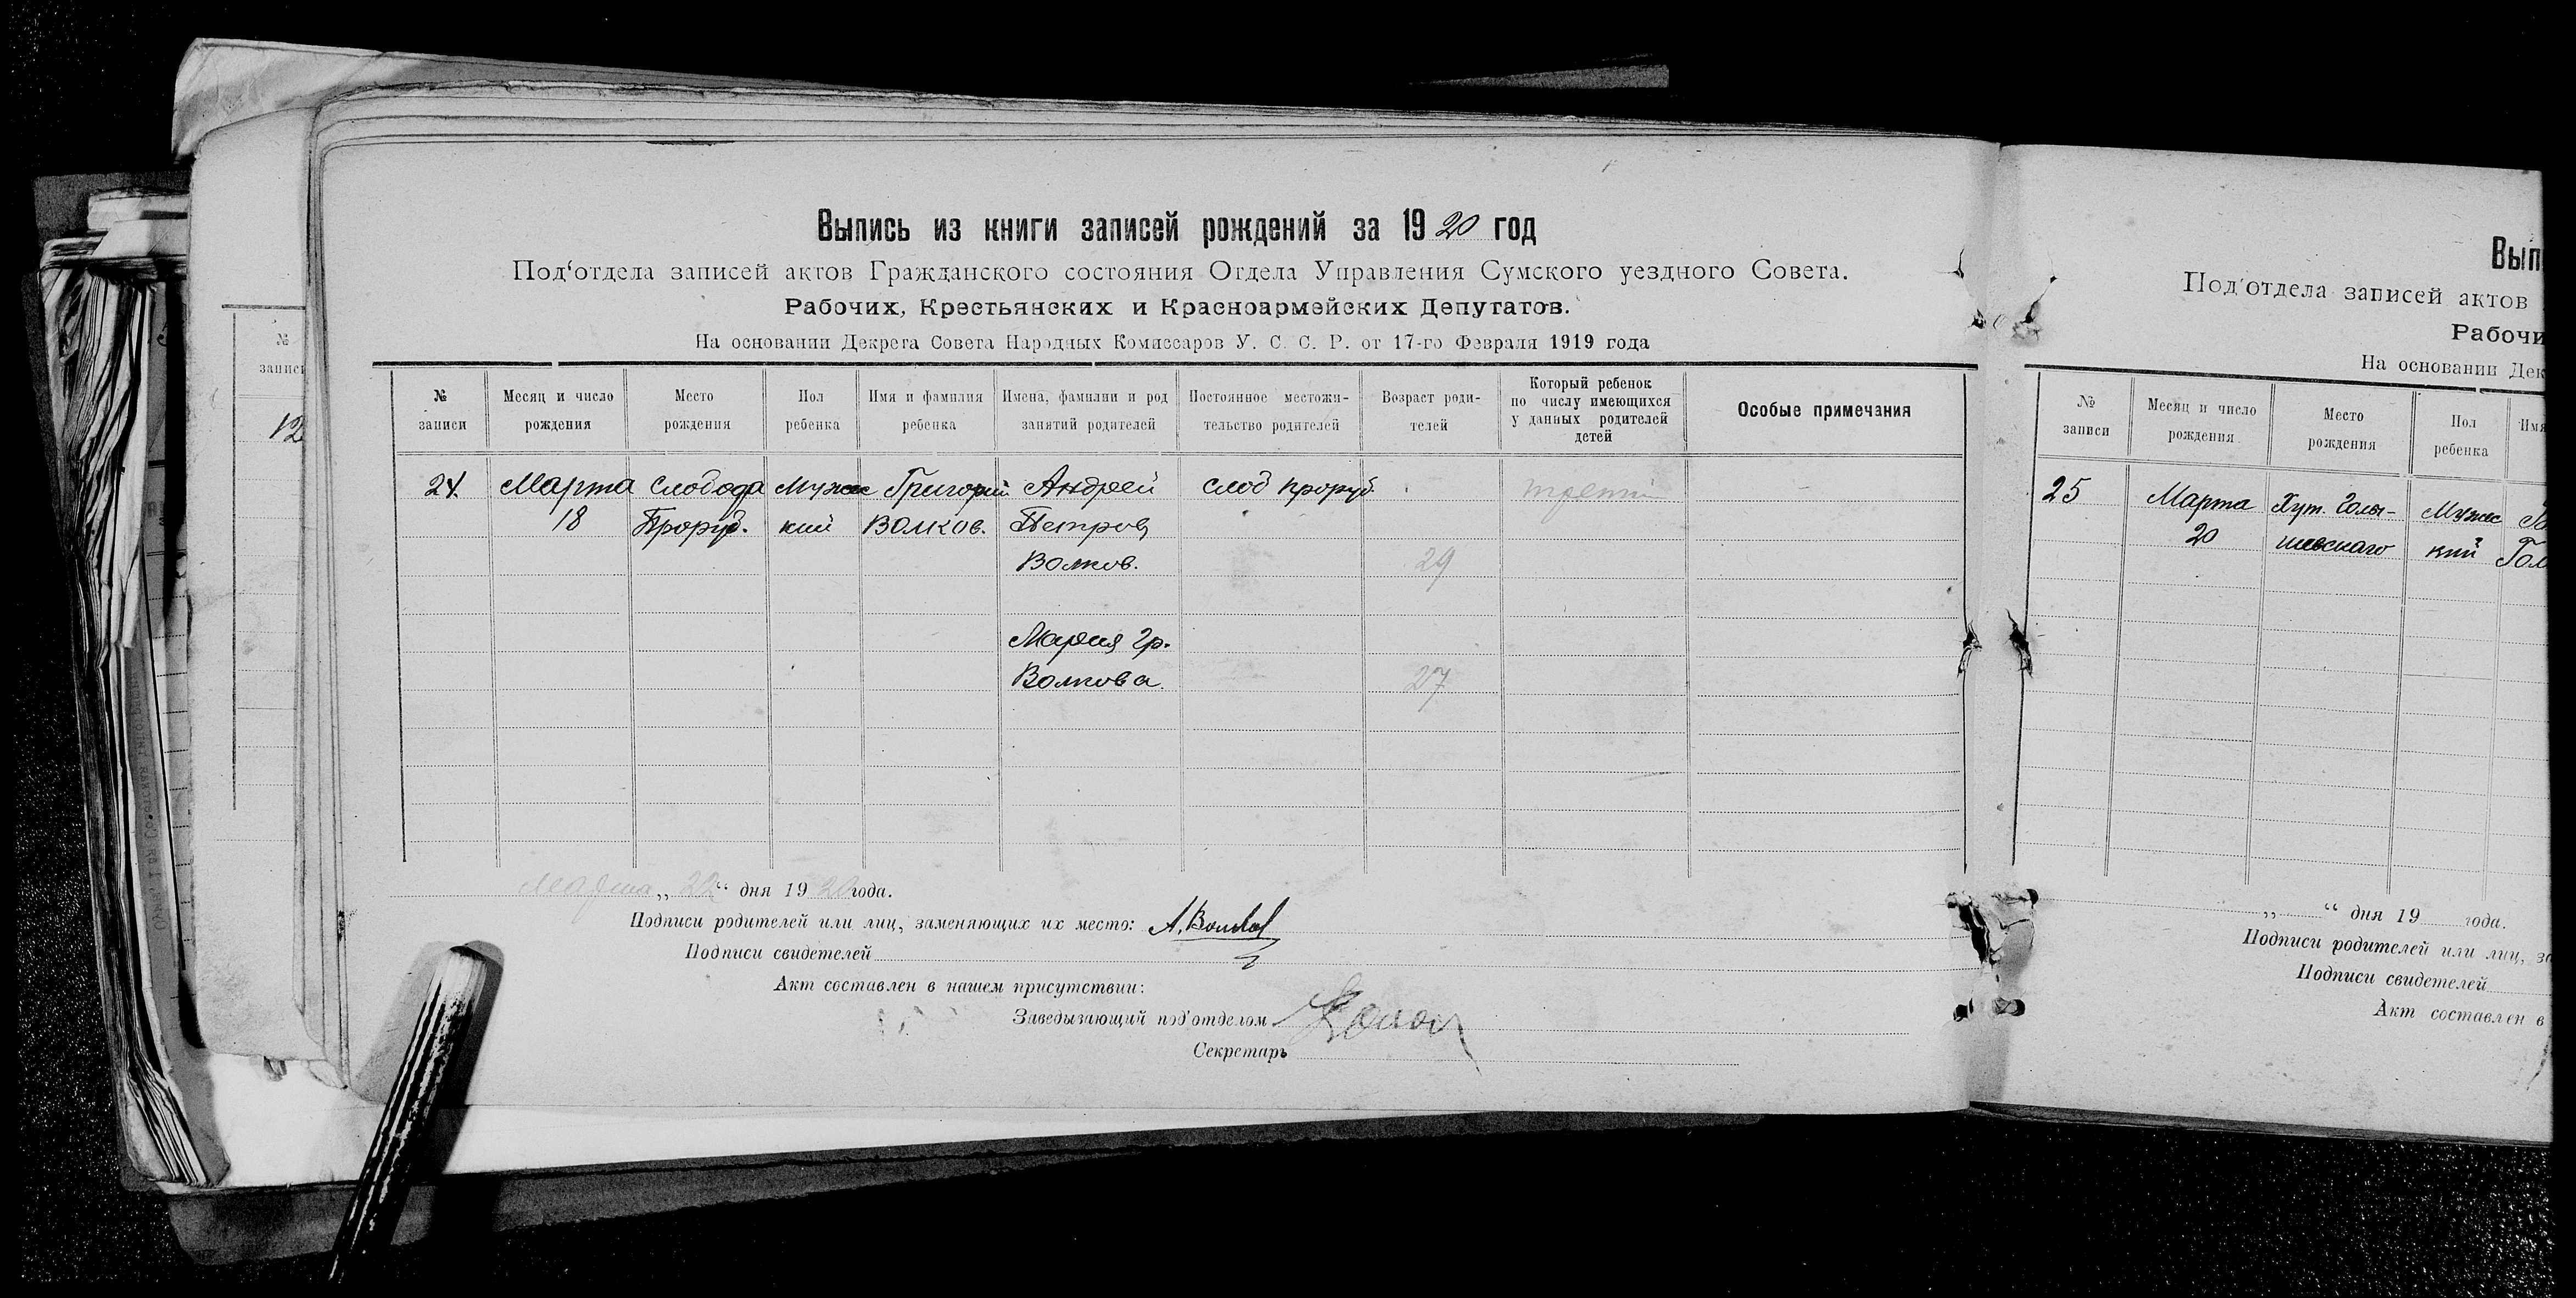 Выпись из книги записей рождений за 1920 год
Под‘отдела записей актов Гражданского состояния Отдела Управления Сумского уездного Совета.
Рабочих, Крестьянских и Красноармейских Депутатов.
На основании Декрета Совета Народных Комиссаров У. С. С. Р. от 17-го Февраля 1919 года
№ записи
Месяц и число рождения
Место рождения
Пол ребенка
Имя и фамилия ребенка
Имена, фамилии и род занятий родителей
Постоянное местожительство родителей
Возраст родителей
Который ребенок по числу имеющихся у данных родителей детей
Особые примечания
24. Марта Слобода Мужес Григорий Андрей слод Проруб. трети
18 Проруб. кий Волков. Петров
Волков. 29
Мария Гр.
Волкова. 27
Марта „22“ дня 1920 года.
Подписи родителей или лиц, заменяющих их место: А. Волков
Подписи свидетелей
Акт составлен в нашем присутствии:
Заведывающий под'отделом
Секретарь
№
записи
12
Вып
Под'отдела записей актов
Рабочи
На основании Дек
№ записи
Месяц и число рождения
Место рождения
Пол ребенка
Имя
25 Марта Хут. Голы- Мужес
20 шевскаго кий Гол
„ “ дня 19 года.
Подписи родителей или лиц, за
Подписи свидетелей
Акт составлен в